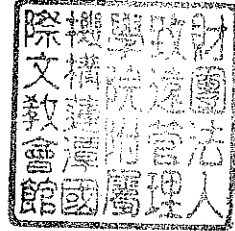 財團法人
致遠管理
學院附屬
機構蓮潭國
際文教會館